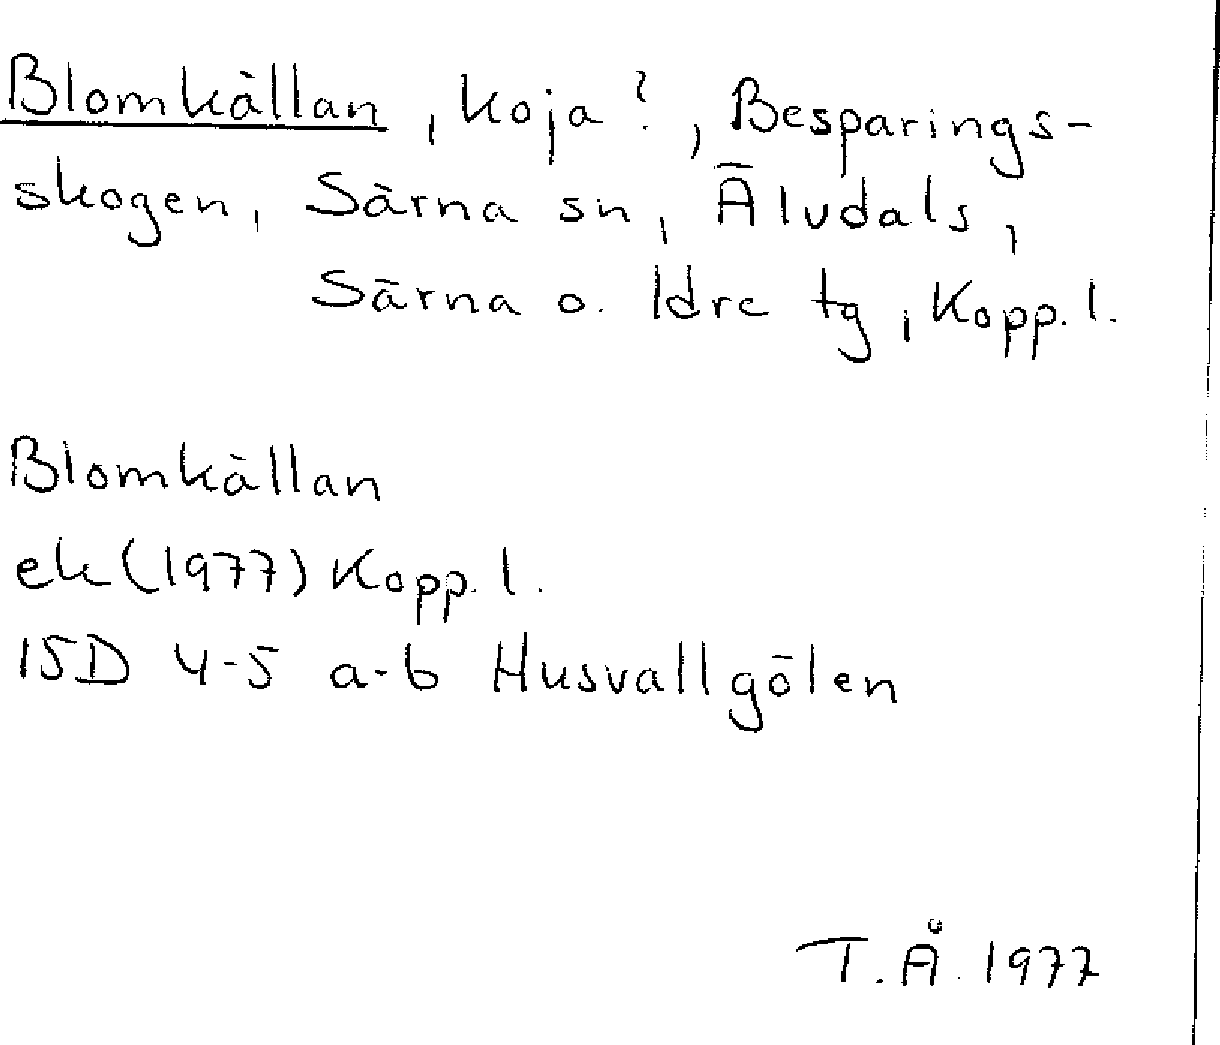 Blomkällan, koja?, Besparings-
skogen, Särna sn, Älvdals,
Särna o. Idre tg, Kopp. l.
Blomkällan
ek (1977) Kopp. l.
15D 4-5 a-b Husvallgölen
T. Å. 1977